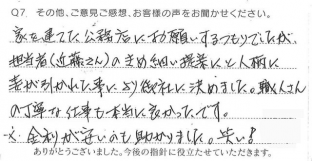 Q7. その他、ご意見ご感想、お客様の声をお聞かせください。
家を建てた公務店にお願いするつもりでしたが、
担当者(近藤さん)のきめ細い提案にと人柄に
妻がひかれた事により御社に決めました。職人さん
の丁寧な仕事も本当に良かったです。
金利が安いのも助かりました。笑い!
ありがとうございました。今後の指針に役立たせていただきます。